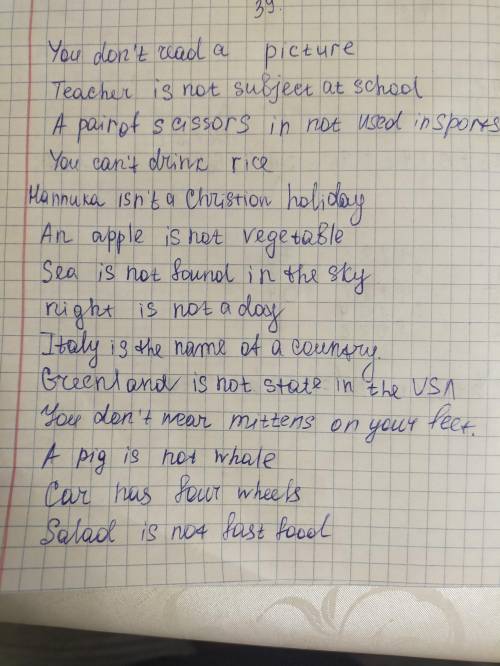 39.
You don't read a picture
Teacher is not subject at school
A pair of scissors in not used in sports
You can't drink rice
Hannuka isn't a Christion holiday
An apple is not vegetable
Sea is not found in the sky
night is not a day
Italy is the name of a country.
Greenland is not state in the USA
You don't wear mittens on your feet.
A pig is not whale
Car has four wheels
Salad is not fast food